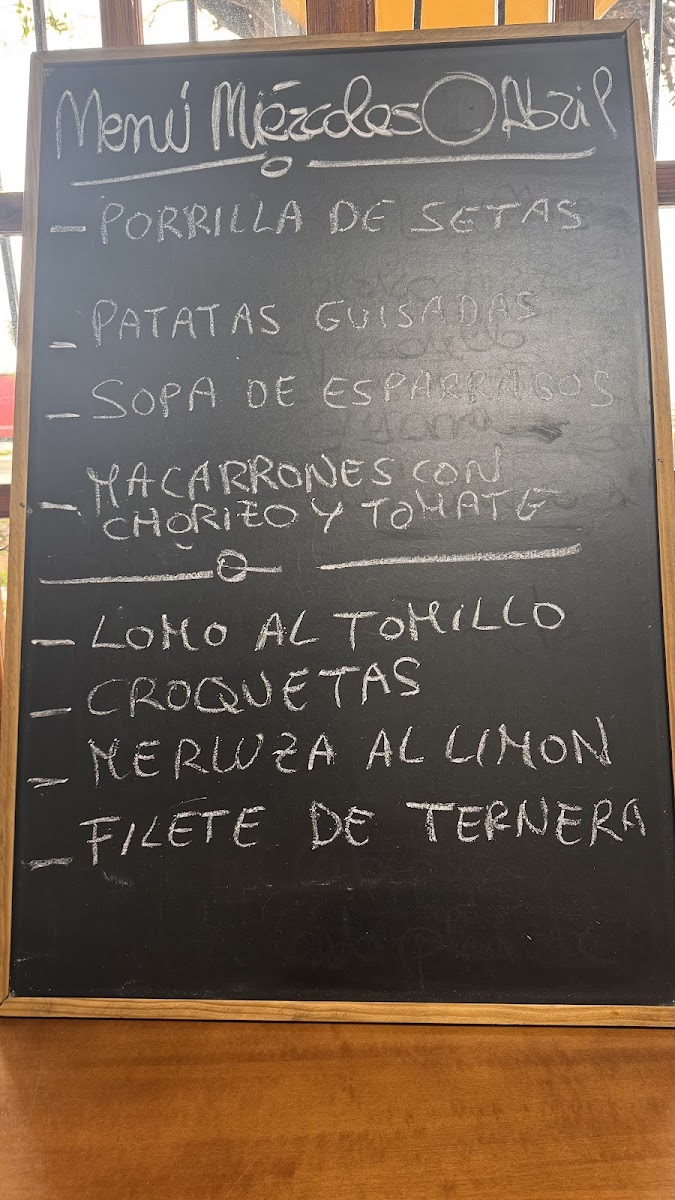 Menú Miércoles Abril
- PORRILLA DE SETAS
- PATATAS GUISADAS
- SOPA DE ESPARRAGOS
- MACARRONES CON
CHORIZO Y TOMATE
- LOMO AL TOMILLO
- CROQUETAS
- MERLUZA AL LIMON
- FILETE DE TERNERA